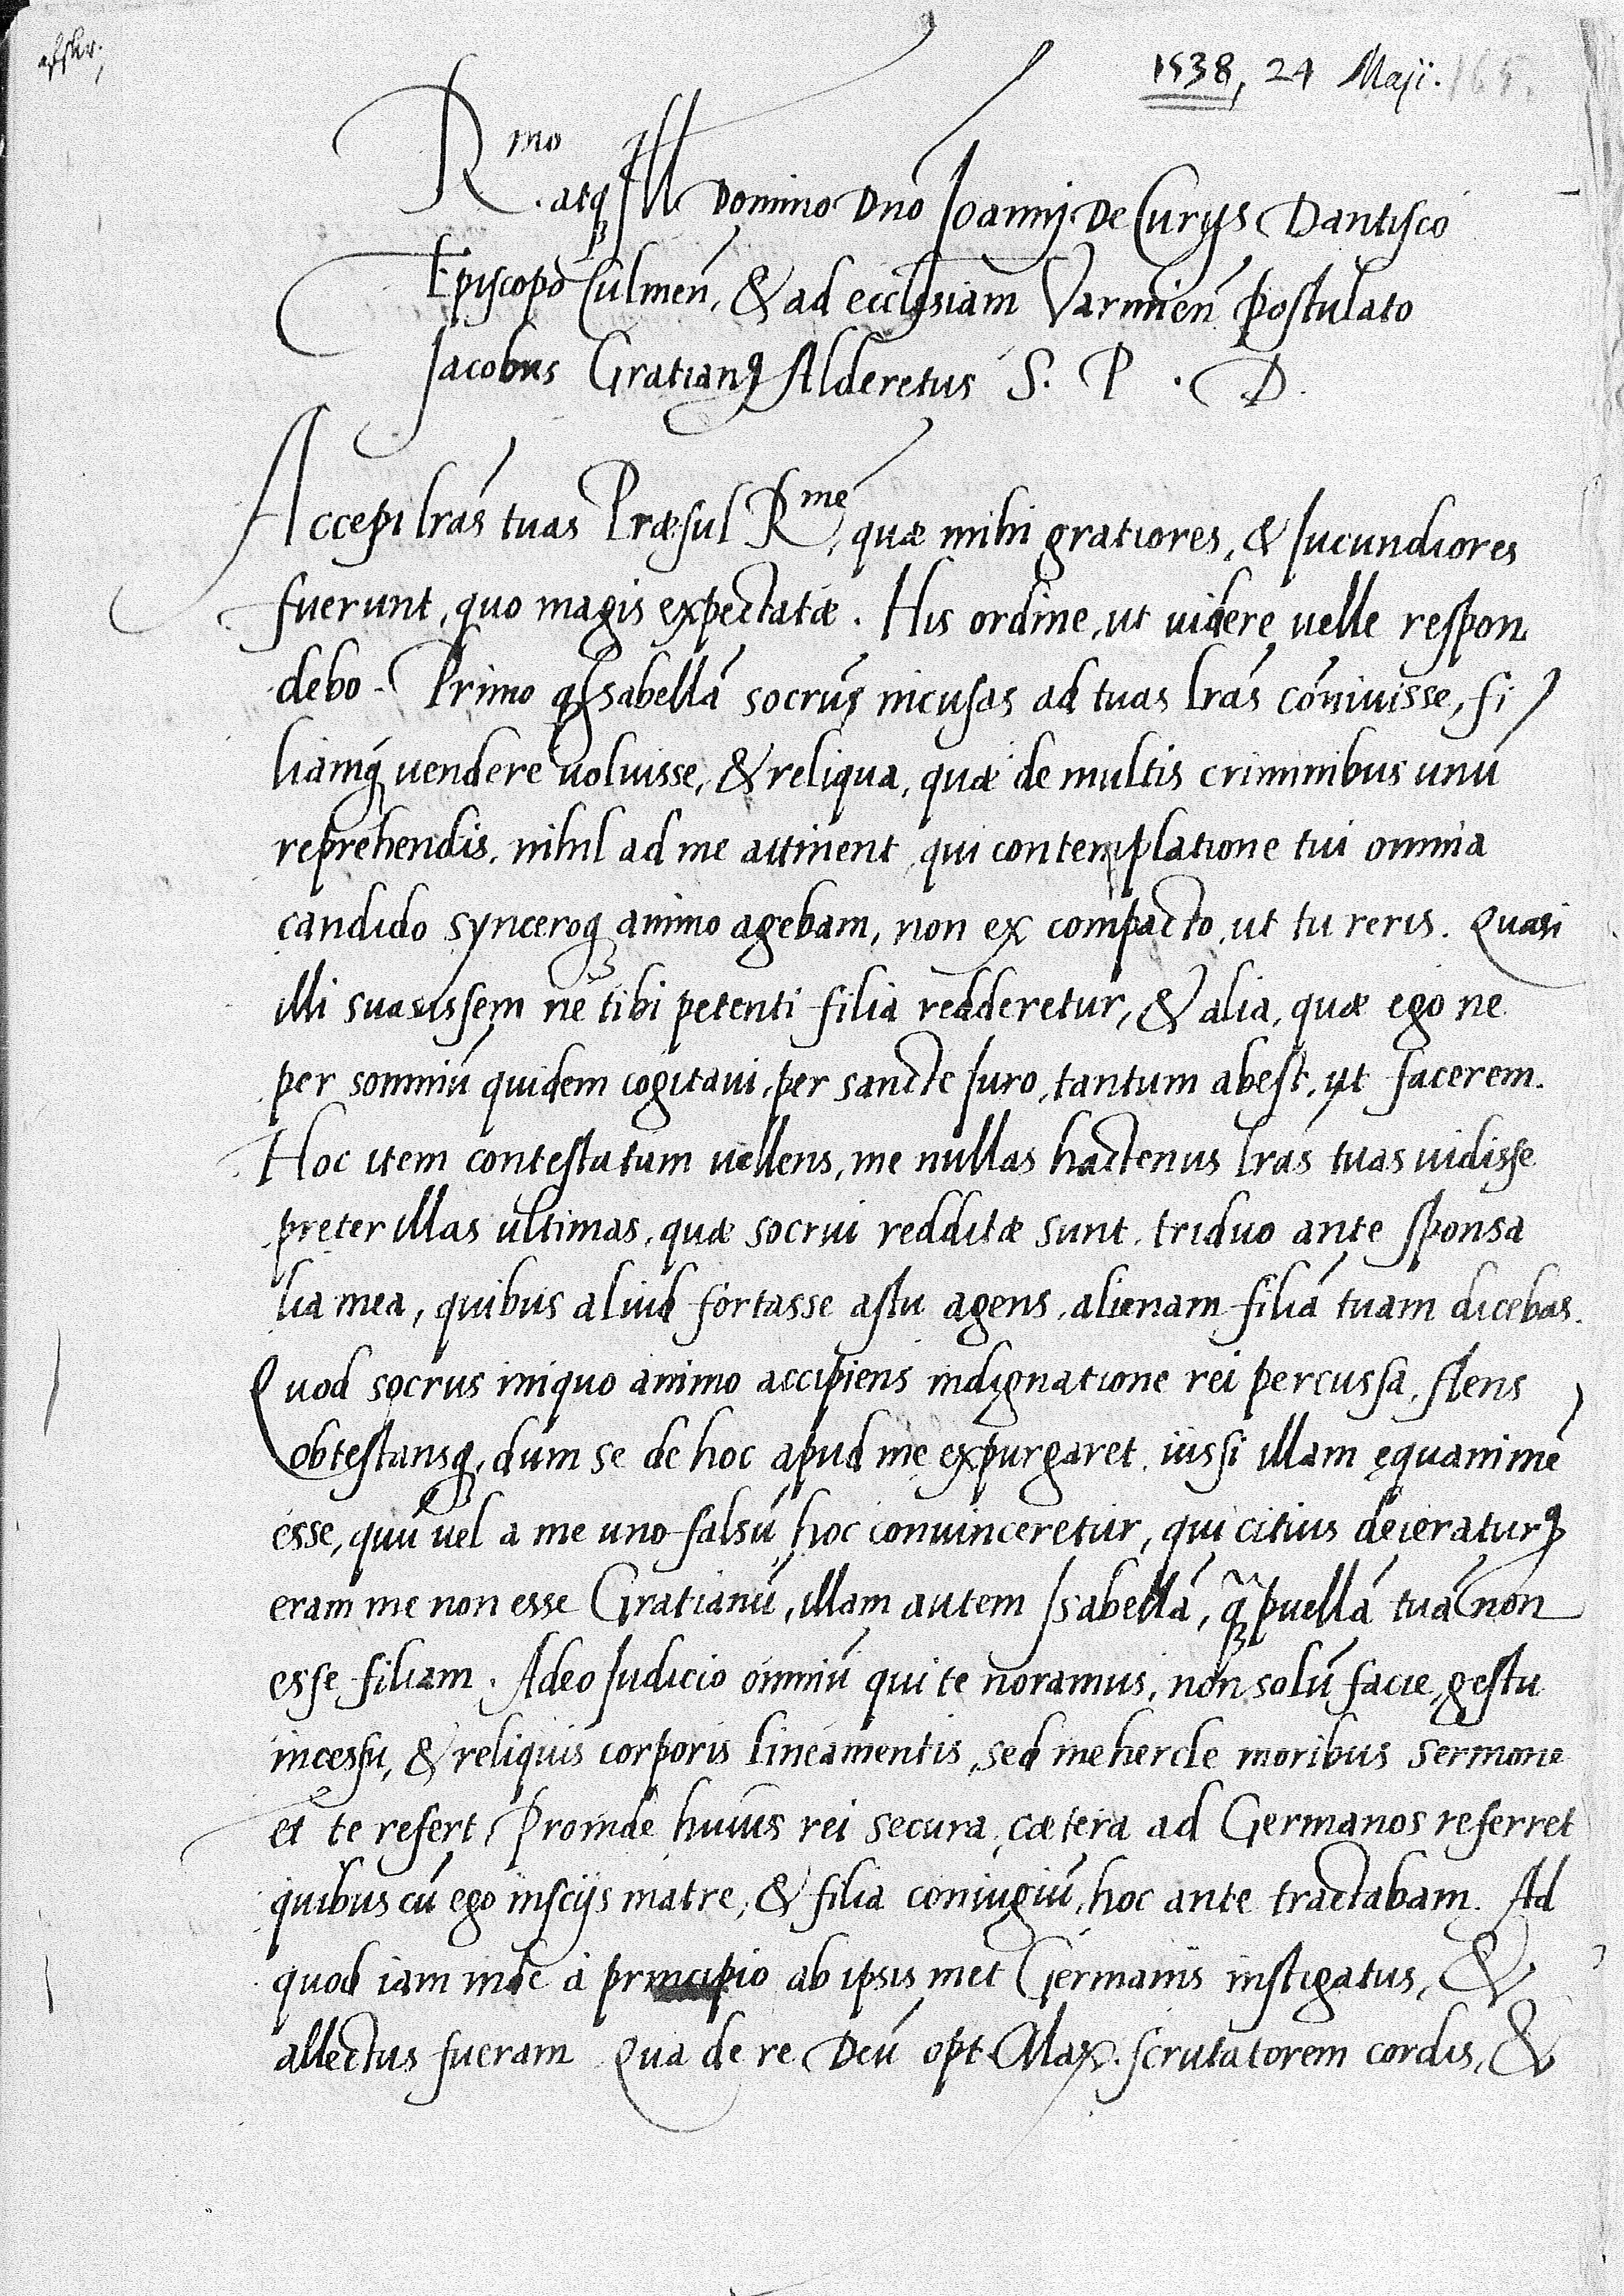 1538, 24 Maji. 165.
Rmo atq Ill Domino Dno Ioannj De Curijs Dantisco
Episcopo Culmen̄, & ad ecclesiam Varmien̄ postulato
Jacobus Gratianq Alderetus S. P. D.
Accepi lr̄as tuas Præsul Rme, quæ mihi gratiores, & Iucundiores
fuerunt, quo magis expectatæ. His ordine, ut uidere uelle respon
debo. Primo q Isabellā socrū incusas ad tuas lr̄as cōniuisse, fi
liamq uendere uoluisse, & reliqua, quæ de multis criminibus unū
reprehendis, nihil ad me attinent, qui contemplatione tui omnia
candido synceroq animo agebam, non ex compacto, ut tu reris. Quasi
illi suasissem ne tibi petenti filia redderetur, & alia, quæ ego ne
per somniū quidem cogitaui, per sancte Iuro, tantum abest, ut facerem.
Hoc item contestatum uellens, me nullas hactenus lr̄as tuas uidisse
preter illas ultimas, quæ socrui redditæ sunt, triduo ante sponsa
lia mea, quibus aliud fortasse astu agens, alienam filiā tuam dicebas.
Quod socrus iniquo animo accipiens indignatione rei percussa, flens
obtestansq, dum se de hoc apud me expurgaret, iussi illam ęquanimē
esse, quū uel a me uno falsū hoc conuinceretur, qui citius deieraturq
eram me non esse Gratianū, illam autem Isabellā, q̃ puellā tuā non
esse filiam. Adeo Iudicio omniū qui te noramus, non solū facie, gestu
incessu, & reliquis corporis lineamentis, sed mehercle moribus sermone
et te refert, Proinde huius rei secura, cætera ad Germanos referret
quibus cū ego insciis matre, & filia coniugiū hoc ante tractabam. Ad
quod iam inde à principio ab ipsis met Germanis instigatus, &
allectus fueram Qua de re Deū opt. Max. scrutatorem cordis, &